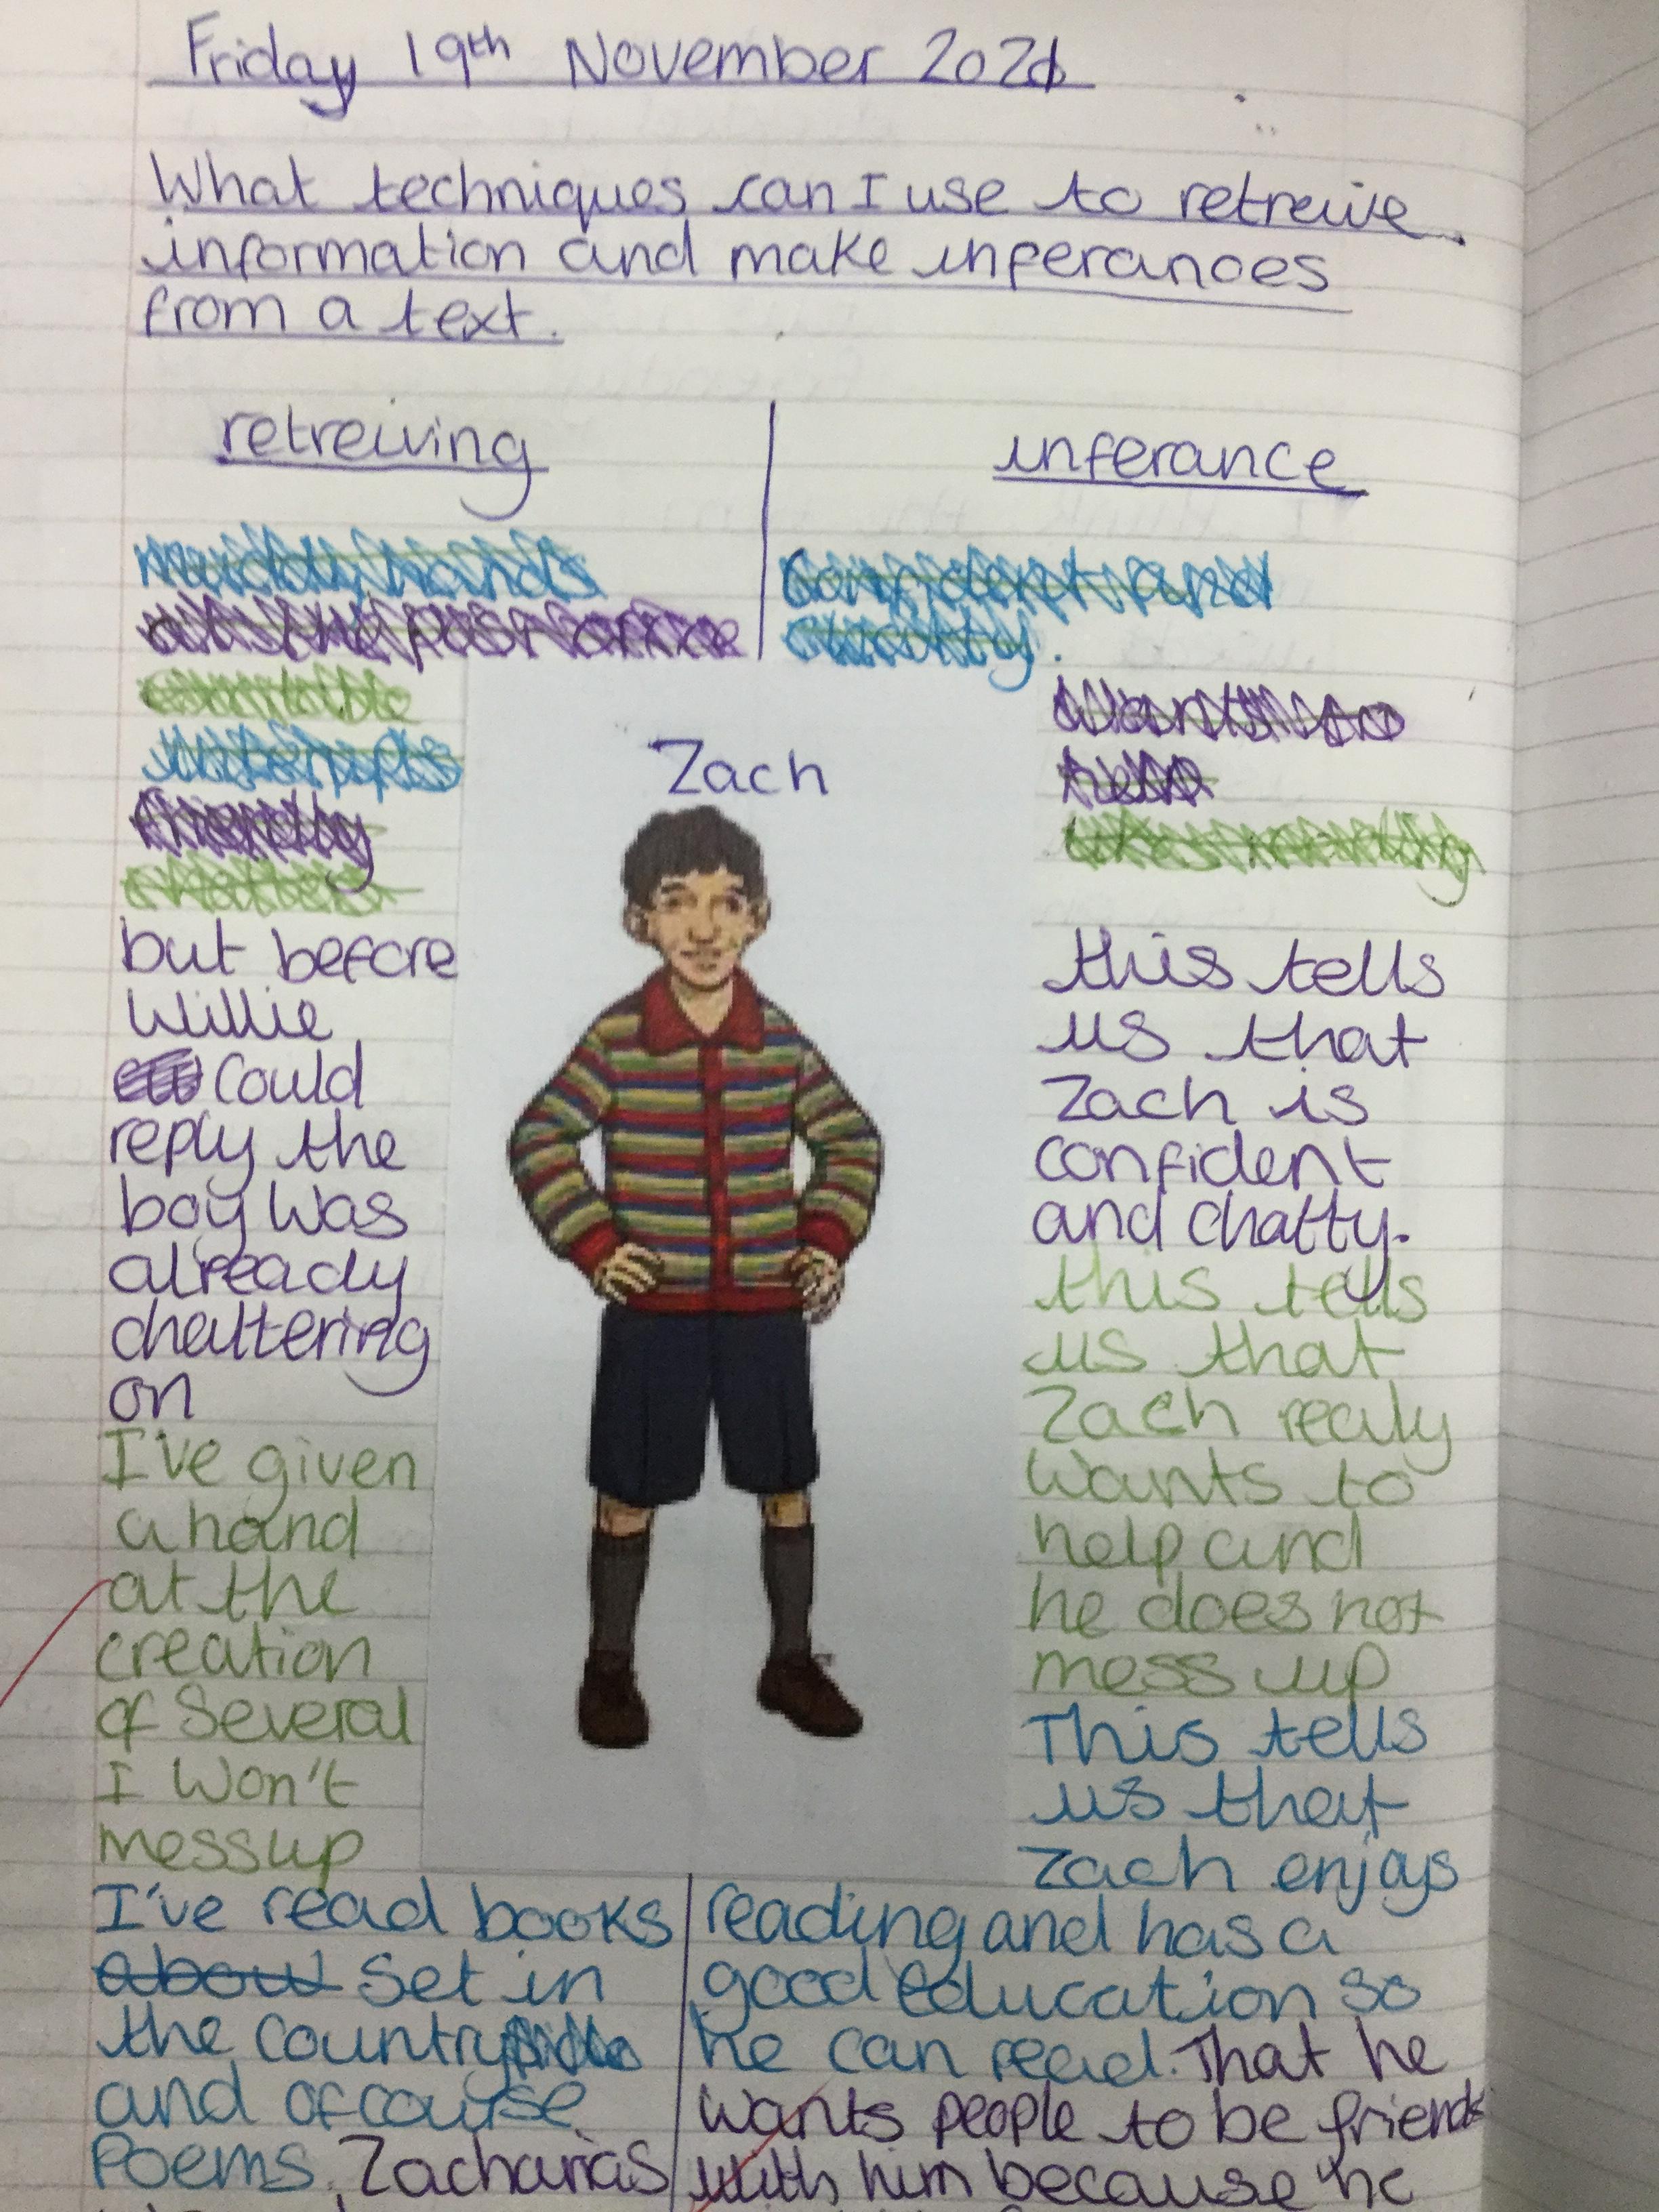 Friday 19th November 2021
What techniques can I use to retreive
information and make inferances
from a text.
retreiving
inferance
muddy hands
confident and
chatty.
wants to
help
likes reading
interupts
friendly
Zach
but before
Willie
could
reply the
boy was
already
chattering
on
I've given
a hand
at the
creation
of Several
I Won't
mess up
I've read books
about set in
the country
and ofcourse
Poems. Zacharias
this tells
us that
Zach is
confident
and chatty.
this tells
us that
Zach realy
wants to
help and
he does not
mess up
This tells
us that
Zach enjoys
reading and has a
good education so
he can read. That he
wants people to be friends
with him because he